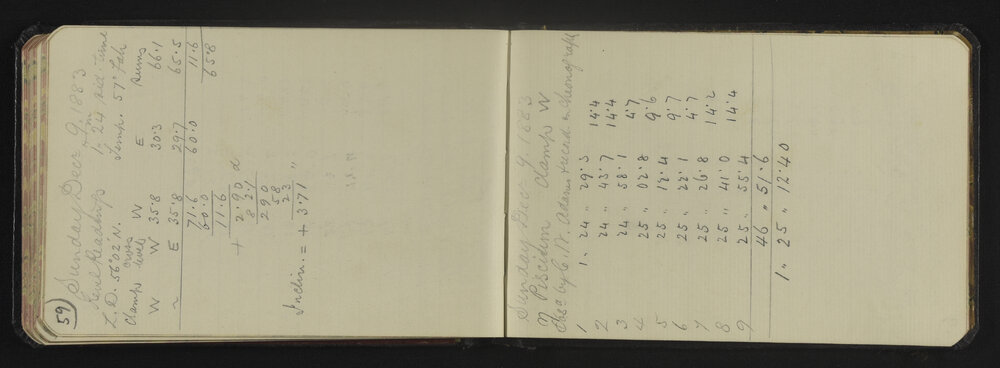 59
Sunday Decr 9. 1883
Level Readings 1h 24m sid. time
Z.D. 56°02' N. Temp. 57° Fah
clamps cross levels W E sums
W W 35.8 30.3 66.1
~ E 35.8 29.7 65.5
71.6 60.0 11.6
60.0 65.8
11.6
+ 2.90 d
8 2.1
290
58
23
Inclin. = + 3.71"
Sunday Decr 9 1883
η Piscium clamp W
Obsd by C. W. Adams & recd on chronograph
1 1 " 24 " 29.3 14.4
2 24 " 43.7 14.4
3 24 " 58.1 4.7
4 25 " 02.8 9.6
5 25 " 12.4 9.7
6 25 " 22.1 4.7
7 25 " 26.8 14.2
8 25 " 41.0 14.4
9 25 " 55.4
46 " 51.6
1 " 25 " 12.40